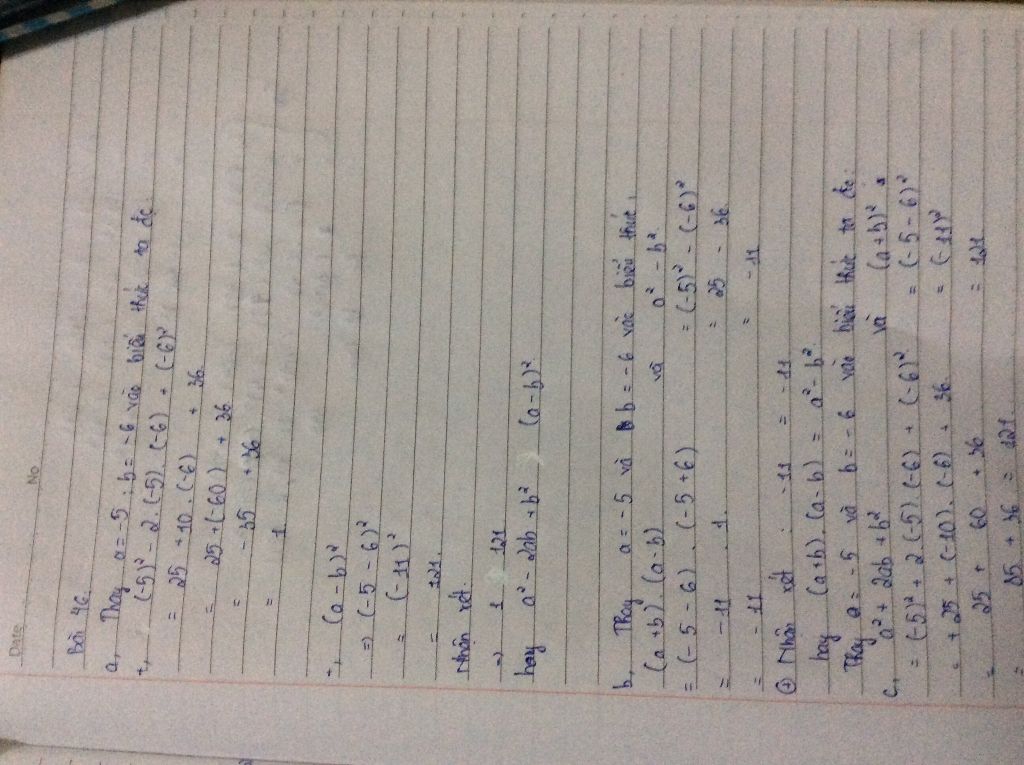 Date
No
Bài 46.
a, Thay a = -5 ; b = -6 vào biểu thức ta đc
+, (-5)² - 2.(-5).(-6) + (-6)²
= 25 + 10.(-6) + 36.
= 25 + (-60) + 36
= -35 + 36
= 1.
+, (a - b)²
=) (-5 - 6)²
= (-11)²
= 121.
Nhận xét.
=) 1 121
hay a² - 2ab + b² (a - b)².
b, Thay a = -5 và b = -6 vào biểu thức.
(a + b).(a - b) và a² - b².
= (-5 - 6).(-5 + 6) = (-5)² - (-6)²
= -11 . 1. = 25 - 36.
= -11 = -11
Nhận xét : -11 = -11
hay (a + b).(a - b) = a² - b².
Thay a = -5 và b = -6 vào biểu thức ta đc:
c, a² + 2ab + b² và (a + b)²
= (-5)² + 2(-5).(-6) + (-6)². = (-5 - 6)²
= +25 + (-10).(-6) + 36. = (-11)²
= 25 + 60 + 36 = 121
= 85 + 36 = 121.